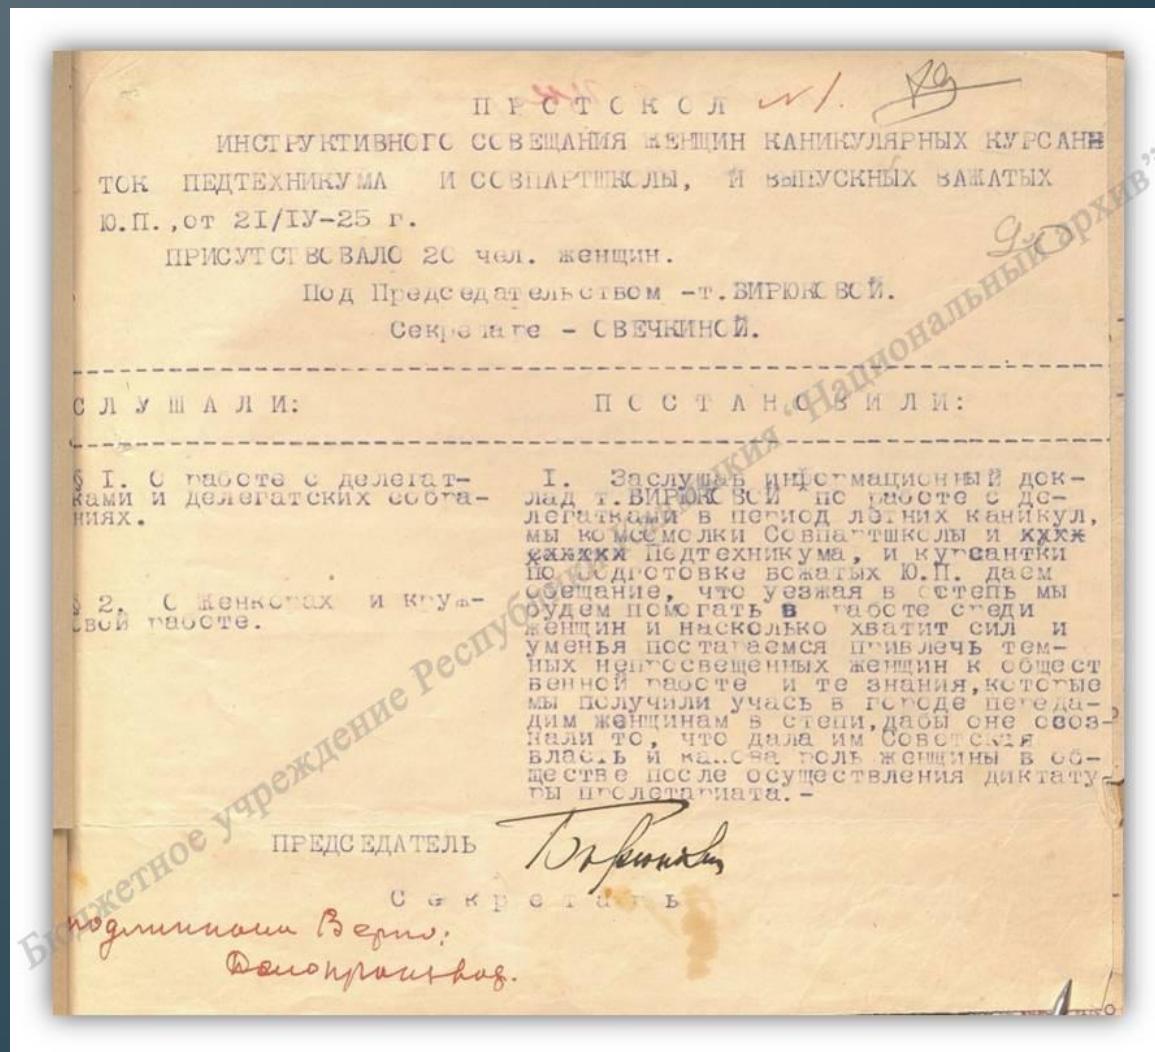 ПРОТОКОЛ №1.
ИНСТРУКТИВНОГО СОВЕЩАНИЯ ЖЕНЩИН КАНИКУЛЯРНЫХ КУРСАН
ТОК ПЕДТЕХНИКУМА И СОВПАРТШКОЛЫ, И ВЫПУСКНЫХ ВАЖАТЫХ
Ю.П.,от 21/IУ-25 г.
ПРИСУТСТВОВАЛО 20 чел. женщин.
Под Председательством -т.БИРЮКОВОЙ.
Секретаре - ОВЕЧКИНОЙ.
СЛУШАЛИ:
ПОСТАНОВИЛИ:
§ I. О работе с делегат-
ками и делегатских собра-
ниях.
§ 2. О Женкорах и круж-
вой работе.
I. Заслушав информационный док-
лад т.БИРЮКОВОЙ по работе с де-
легатками в период летних каникул,
мы комсомолки Совпартшколы и хххх
хххххх Педтехникума, и курсантки
по подготовке вожатых Ю.П. даем
обещание, что уезжая в степь мы
будем помогать в работе среди
женщин и насколько хватит сил и
уменья постараемся привлечь тем-
ных непросвещенных женщин к общест
венной работе и те знания,которые
мы получили учась в городе переда-
дим женщинам в степи,дабы оне осоз-
нали то, что дала им Советская
власть и какова роль женщины в об-
ществе после осуществления диктату
ры пролетариата.-
ПРЕДСЕДАТЕЛЬ Бирюкова
Секретарь
подлинным Верно:
Делопроизвод.
Бюджетное учреждение Республики Калмыкия "Национальный архив"